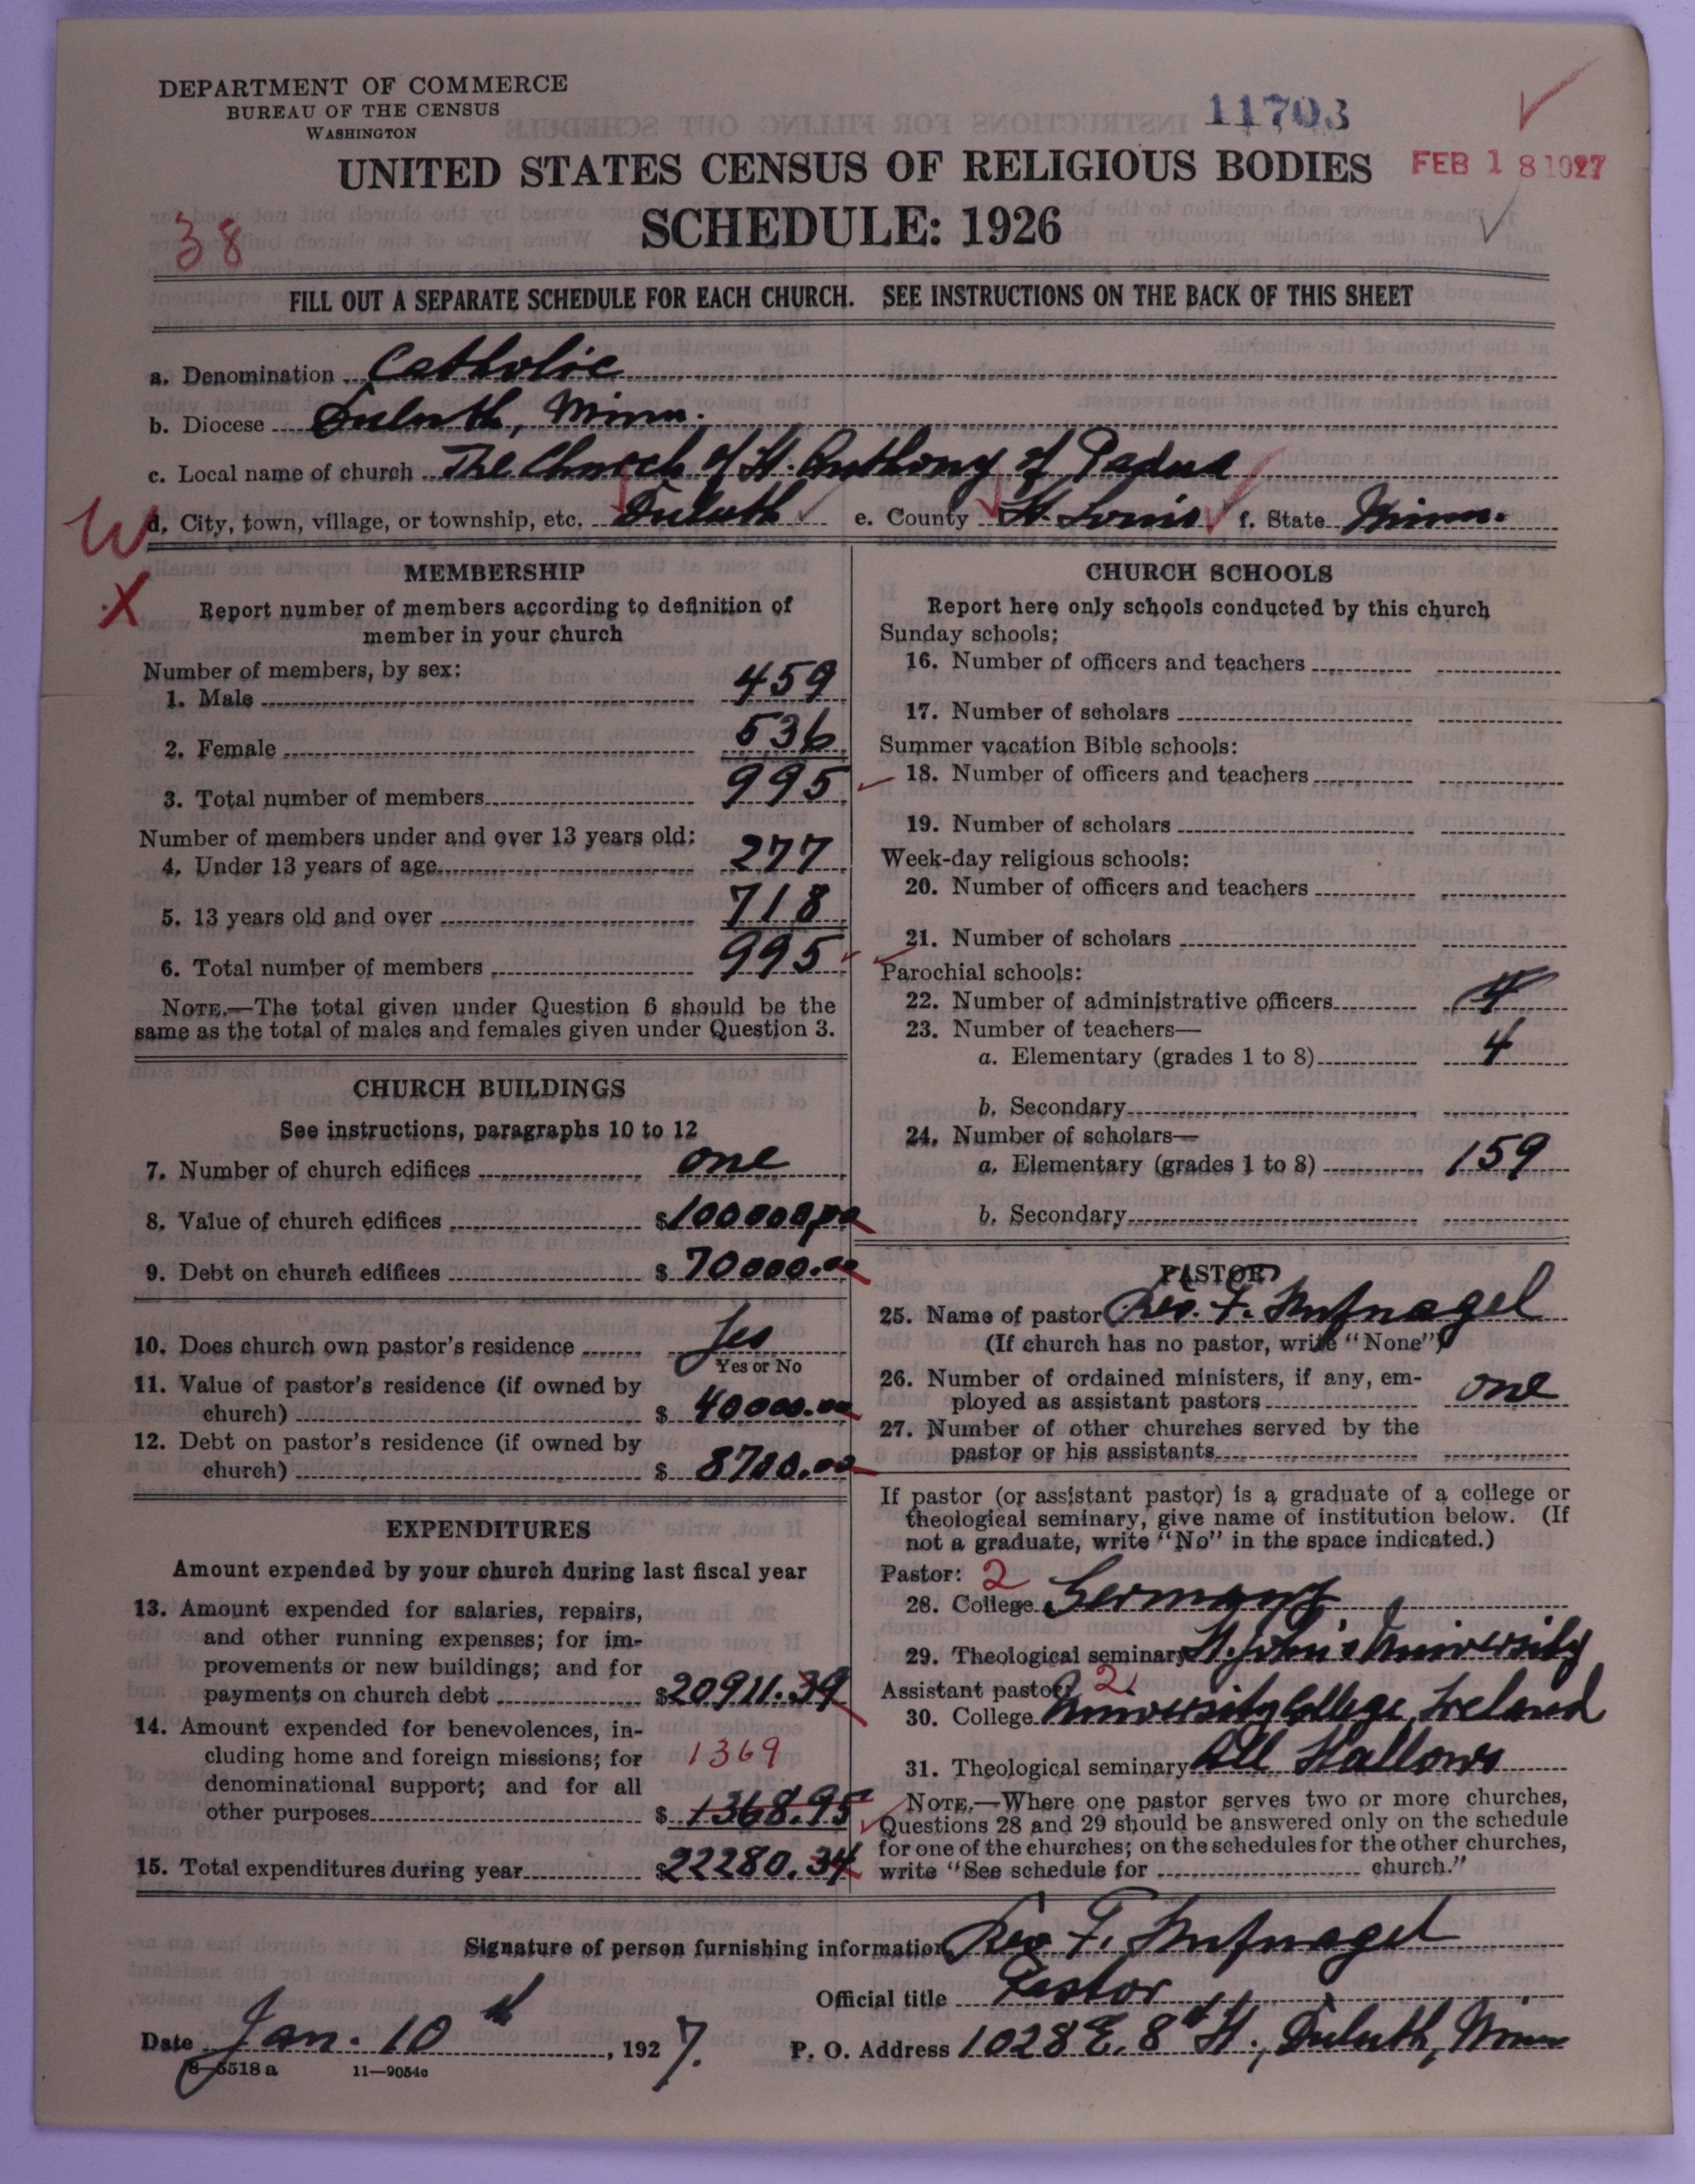 DEPARTMENT OF COMMERCE
BUREAU OF THE CENSUS
WASHINGTON
11703
UNITED STATES CENSUS OF RELIGIOUS BODIES
FEB 18 1927
SCHEDULE: 1926
38
FILL OUT A SEPARATE SCHEDULE FOR EACH CHURCH. SEE INSTRUCTIONS ON THE BACK OF THIS SHEET
a. Denomination Catholic
b. Diocese Duluth, Minn.
c. Local name of church The Church of St. Anthony of Padua
W d. City, town, village, or township, etc. Duluth e. County St. Louis f. State Minn.
X
MEMBERSHIP
Report number of members according to definition of
member in your church
Number of members, by sex:
1. Male 459
2. Female 536
3. Total number of members 995
Number of members under and over 13 years old:
4. Under 13 years of age 277
5. 13 years old and over 718
6. Total number of members 995
NOTE.—The total given under Question 6 should be the
same as the total of males and females given under Question 3.
CHURCH BUILDINGS
See instructions, paragraphs 10 to 12
7. Number of church edifices one
8. Value of church edifices $100000,00
9. Debt on church edifices $70000.00
10. Does church own pastor's residence Yes
Yes or No
11. Value of pastor's residence (if owned by
church) $40000.00
12. Debt on pastor's residence (if owned by
church) $8700.00
EXPENDITURES
Amount expended by your church during last fiscal year
13. Amount expended for salaries, repairs,
and other running expenses; for im-
provements or new buildings; and for
payments on church debt $20911.39
14. Amount expended for benevolences, in-
cluding home and foreign missions; for 1369
denominational support; and for all
other purposes $1368.95
15. Total expenditures during year $22280.34
CHURCH SCHOOLS
Report here only schools conducted by this church
Sunday schools:
16. Number of officers and teachers
17. Number of scholars
Summer vacation Bible schools:
18. Number of officers and teachers
19. Number of scholars
Week-day religious schools:
20. Number of officers and teachers
21. Number of scholars
Parochial schools:
22. Number of administrative officers
23. Number of teachers—
a. Elementary (grades 1 to 8) 4
b. Secondary
24. Number of scholars—
a. Elementary (grades 1 to 8) 159
b. Secondary
PASTOR
25. Name of pastor Rev. F. Hufnagel
(If church has no pastor, write "None")
26. Number of ordained ministers, if any, em-
ployed as assistant pastors one
27. Number of other churches served by the
pastor or his assistants
If pastor (or assistant pastor) is a graduate of a college or
theological seminary, give name of institution below. (If
not a graduate, write "No" in the space indicated.)
Pastor: 2
28. College Germany
29. Theological seminary St. John's University
Assistant pastor: 2
30. College University College, Ireland
31. Theological seminary All Hallows
NOTE.—Where one pastor serves two or more churches,
Questions 28 and 29 should be answered only on the schedule
for one of the churches; on the schedules for the other churches,
write "See schedule for church."
Signature of person furnishing information Rev F. Hufnagel
Official title Pastor
Date Jan. 10th, 1927. P. O. Address 1028 E. 8th St., Duluth, Minn
8—5518 a 11—9054c